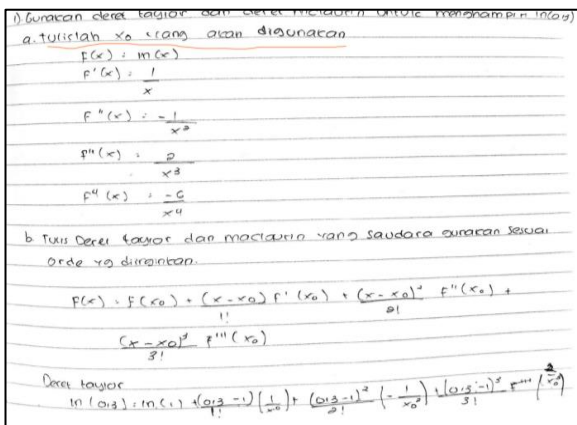 1) Gunakan deret taylor dan deret maclaurin untuk menghampiri ln(0,9)
a. tulislah x₀ yang akan digunakan
F(x) = ln(x)
F'(x) = 1/x
F''(x) = -1/x²
F'''(x) = 2/x³
F⁴(x) = -6/x⁴
b. Tulis Deret taylor dan maclaurin yang saudara gunakan sesuai
orde yg diinginkan.
F(x) = F(x₀) + (x - x₀)/1! F'(x₀) + (x - x₀)²/2! F''(x₀) +
(x - x₀)³/3! F'''(x₀)
Deret taylor
ln(0,3) = ln(1) + (0,3 - 1)/1! (1/x₀) + (0,3 - 1)²/2! (-1/x₀²) + (0,3 - 1)³/3! F''' (2/x₀³)